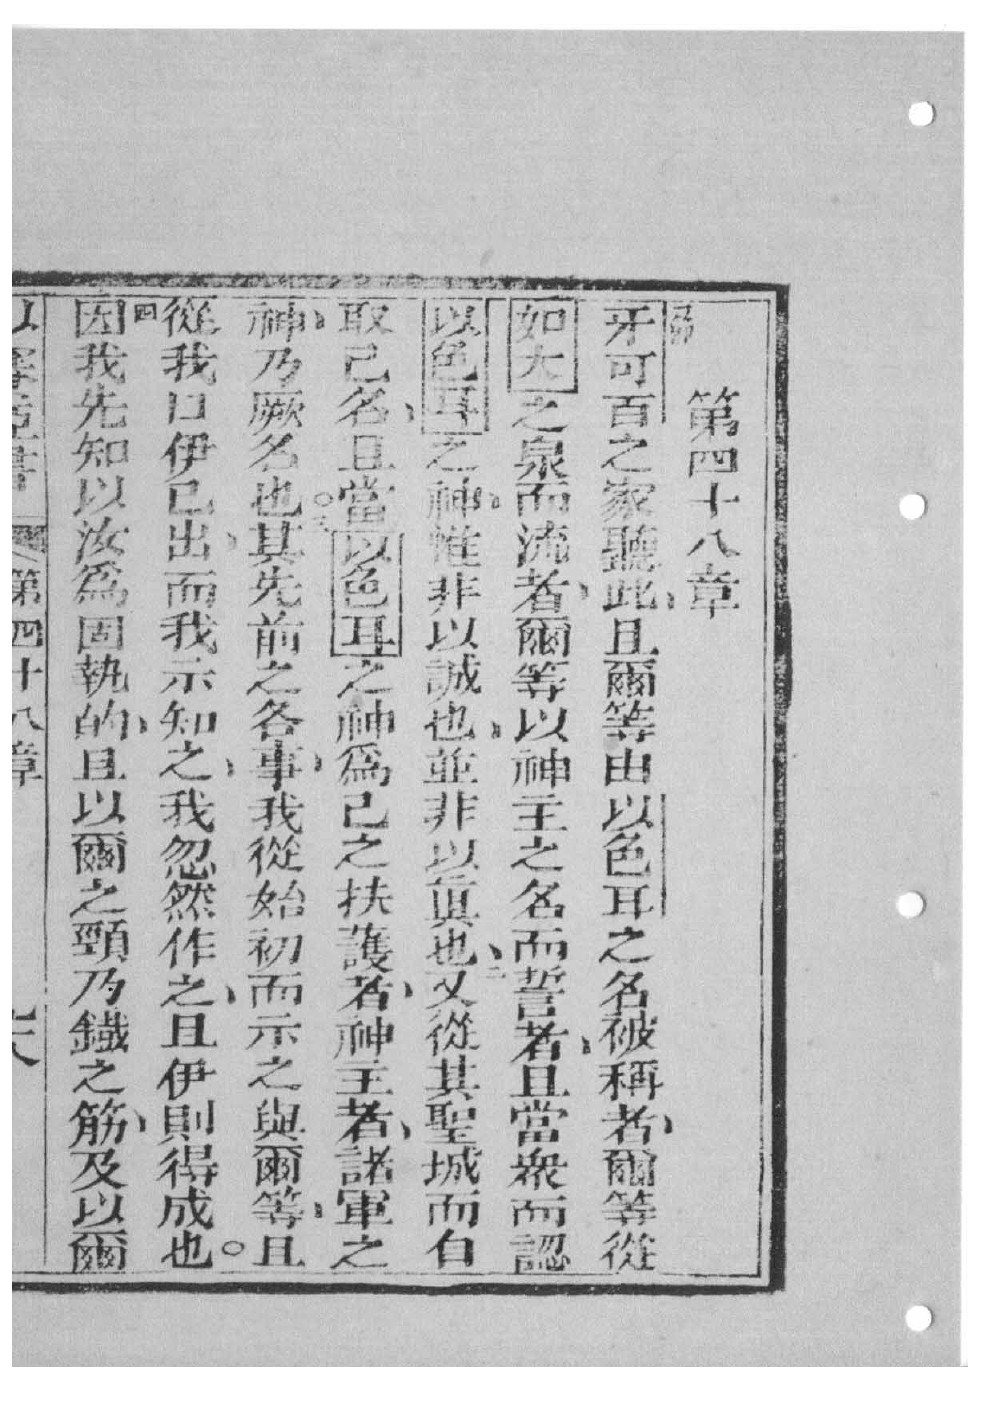 第四十八章
牙可百之家聽此、且爾等由以色耳之名被稱者、爾等從
如大之泉而流者、爾等以神主之名而誓者、且當衆而認
以色耳之神、惟非以誠也、並非以眞也、二又從其聖城而自
取己名、且當以色耳之神爲己之扶護者、神主者、諸軍之
神、乃厥名也。三其先前之各事、我從始初而示之與爾等、且
從我口伊已出、而我示知之、我忽然作之、且伊則得成也。
四因我先知以汝爲固執的、且以爾之頸乃鐵之筋、及以爾
第四十八章